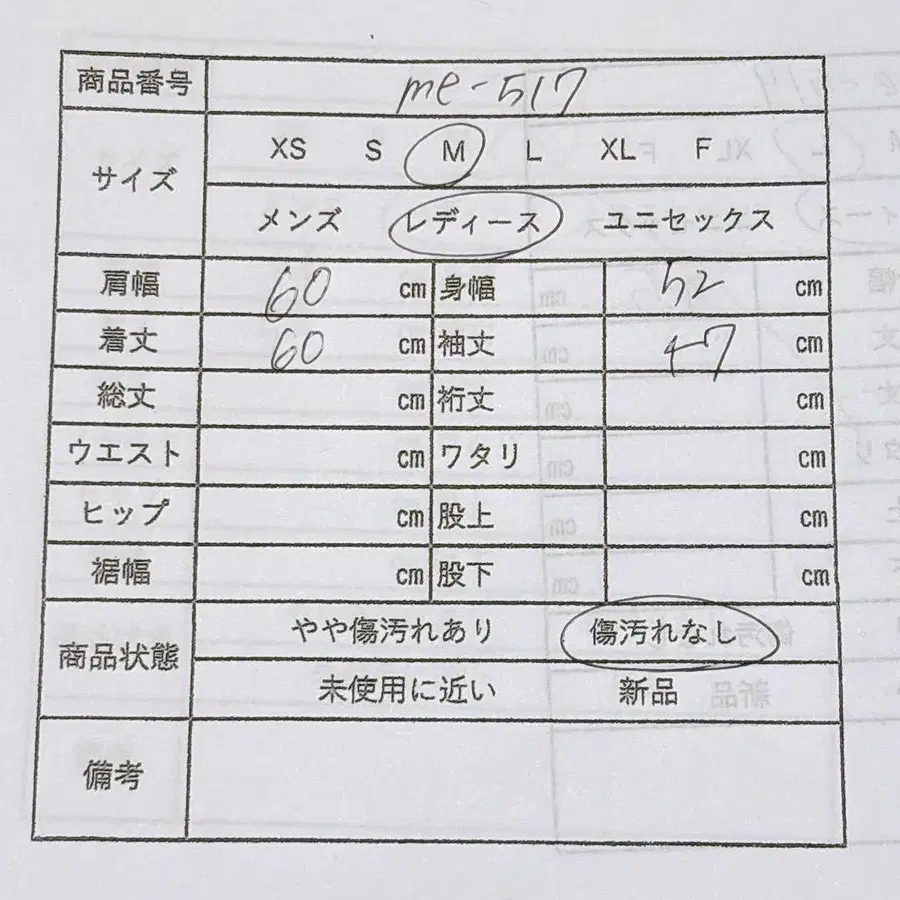 商品番号 me-517
サイズ XS S M L XL F
メンズ レディース ユニセックス
肩幅 60 cm 身幅 52 cm
着丈 60 cm 袖丈 47 cm
総丈 cm 裄丈 cm
ウエスト cm ワタリ cm
ヒップ cm 股上 cm
裾幅 cm 股下 cm
商品状態 やや傷汚れあり 傷汚れなし
未使用に近い 新品
備考